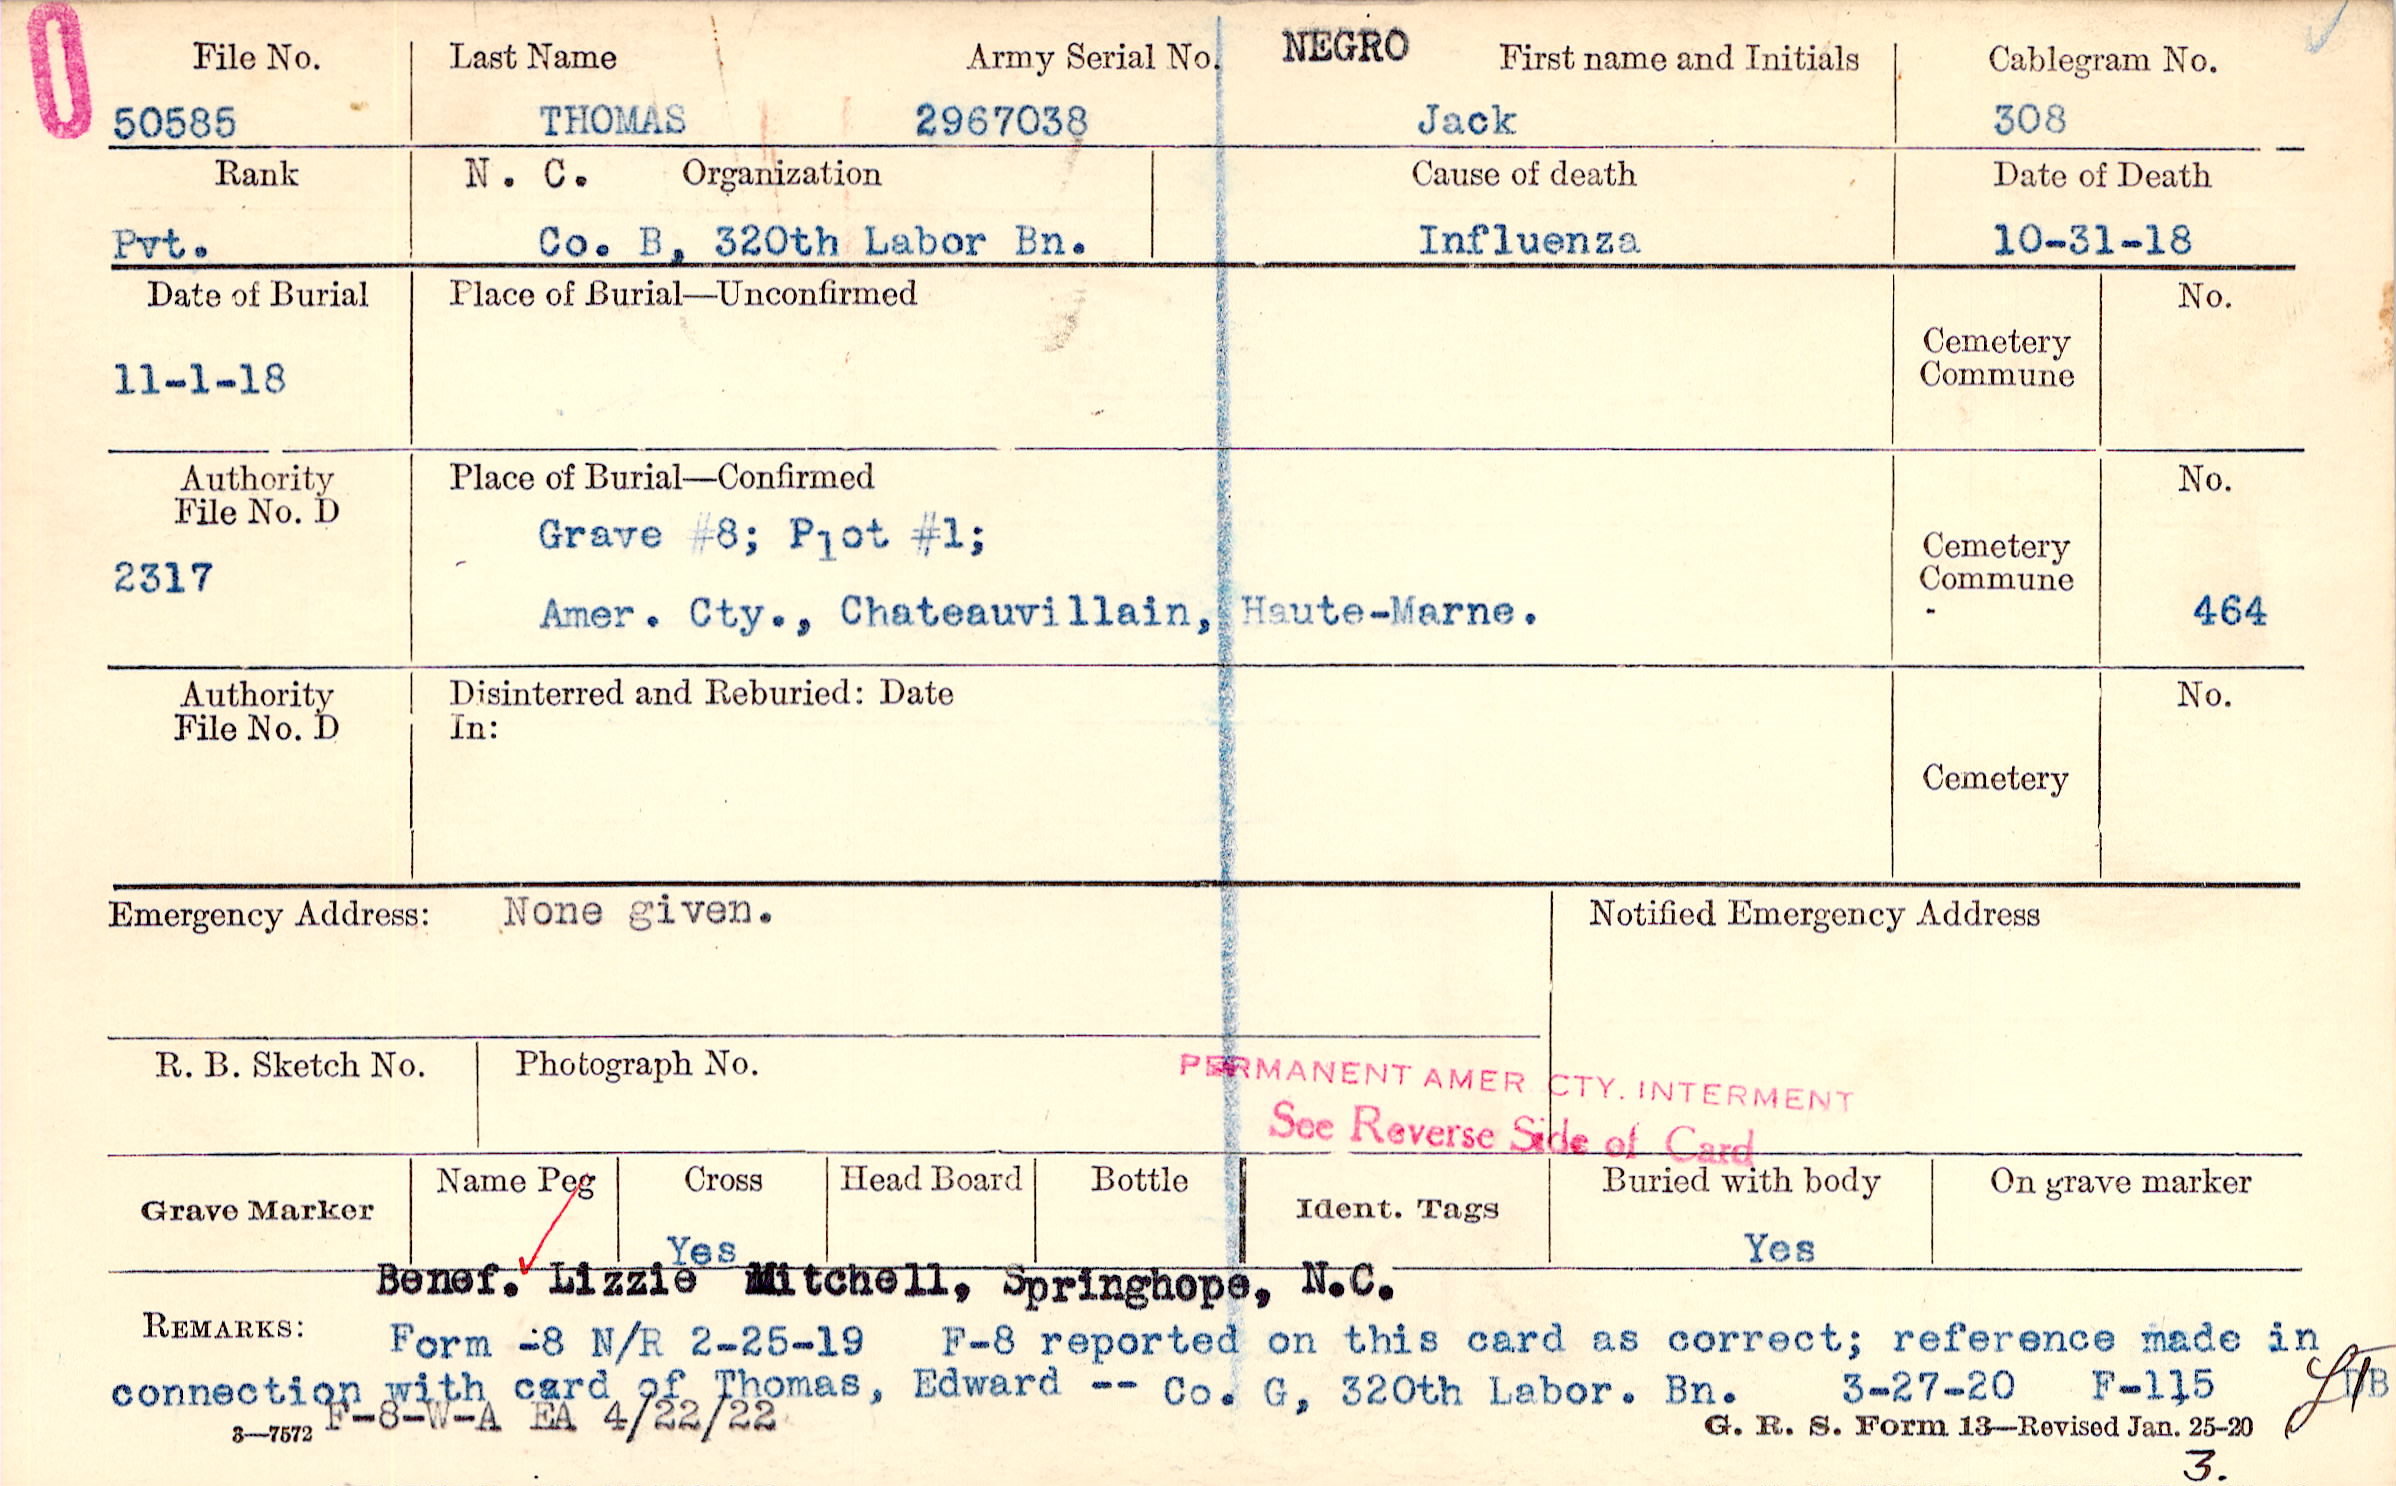 0
File No. Last Name Army Serial No. NEGRO First name and Initials Cablegram No.
50585 THOMAS 2967038 Jack 308
Rank N. C. Organization Cause of death Date of Death
Pvt. Co. B, 320th Labor Bn. Influenza 10-31-18
Date of Burial Place of Burial—Unconfirmed No.
Cemetery
Commune
11-1-18
Authority Place of Burial—Confirmed No.
File No. D
Grave #8; Plot #1;
Cemetery
2317 Commune
Amer. Cty., Chateauvillain, Haute-Marne. - 464
Authority Disinterred and Reburied: Date No.
File No. D In:
Cemetery
Emergency Address: None given. Notified Emergency Address
R. B. Sketch No. Photograph No.
PERMANENT AMER CTY. INTERMENT
See Reverse Side of Card
Grave Marker Name Peg Cross Head Board Bottle Ident. Tags Buried with body On grave marker
Yes Yes
Benef. Lizzie Mitchell, Springhope, N.C.
REMARKS: Form -8 N/R 2-25-19 F-8 reported on this card as correct; reference made in
connection with card of Thomas, Edward -- Co. G, 320th Labor. Bn. 3-27-20 F-115
F-8-W-A EA 4/22/22
3—7572 G. R. S. Form 13—Revised Jan. 25-20
3.